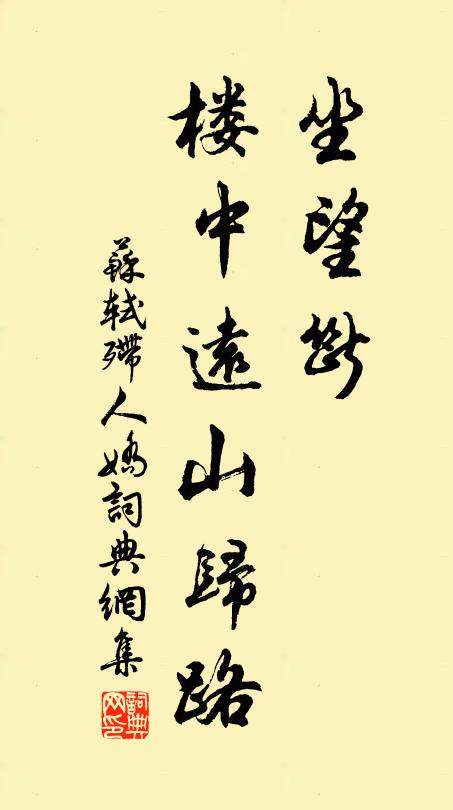 坐望断
楼中遠山歸路
蘇軾殢人嬌詞典網集
詞典网印